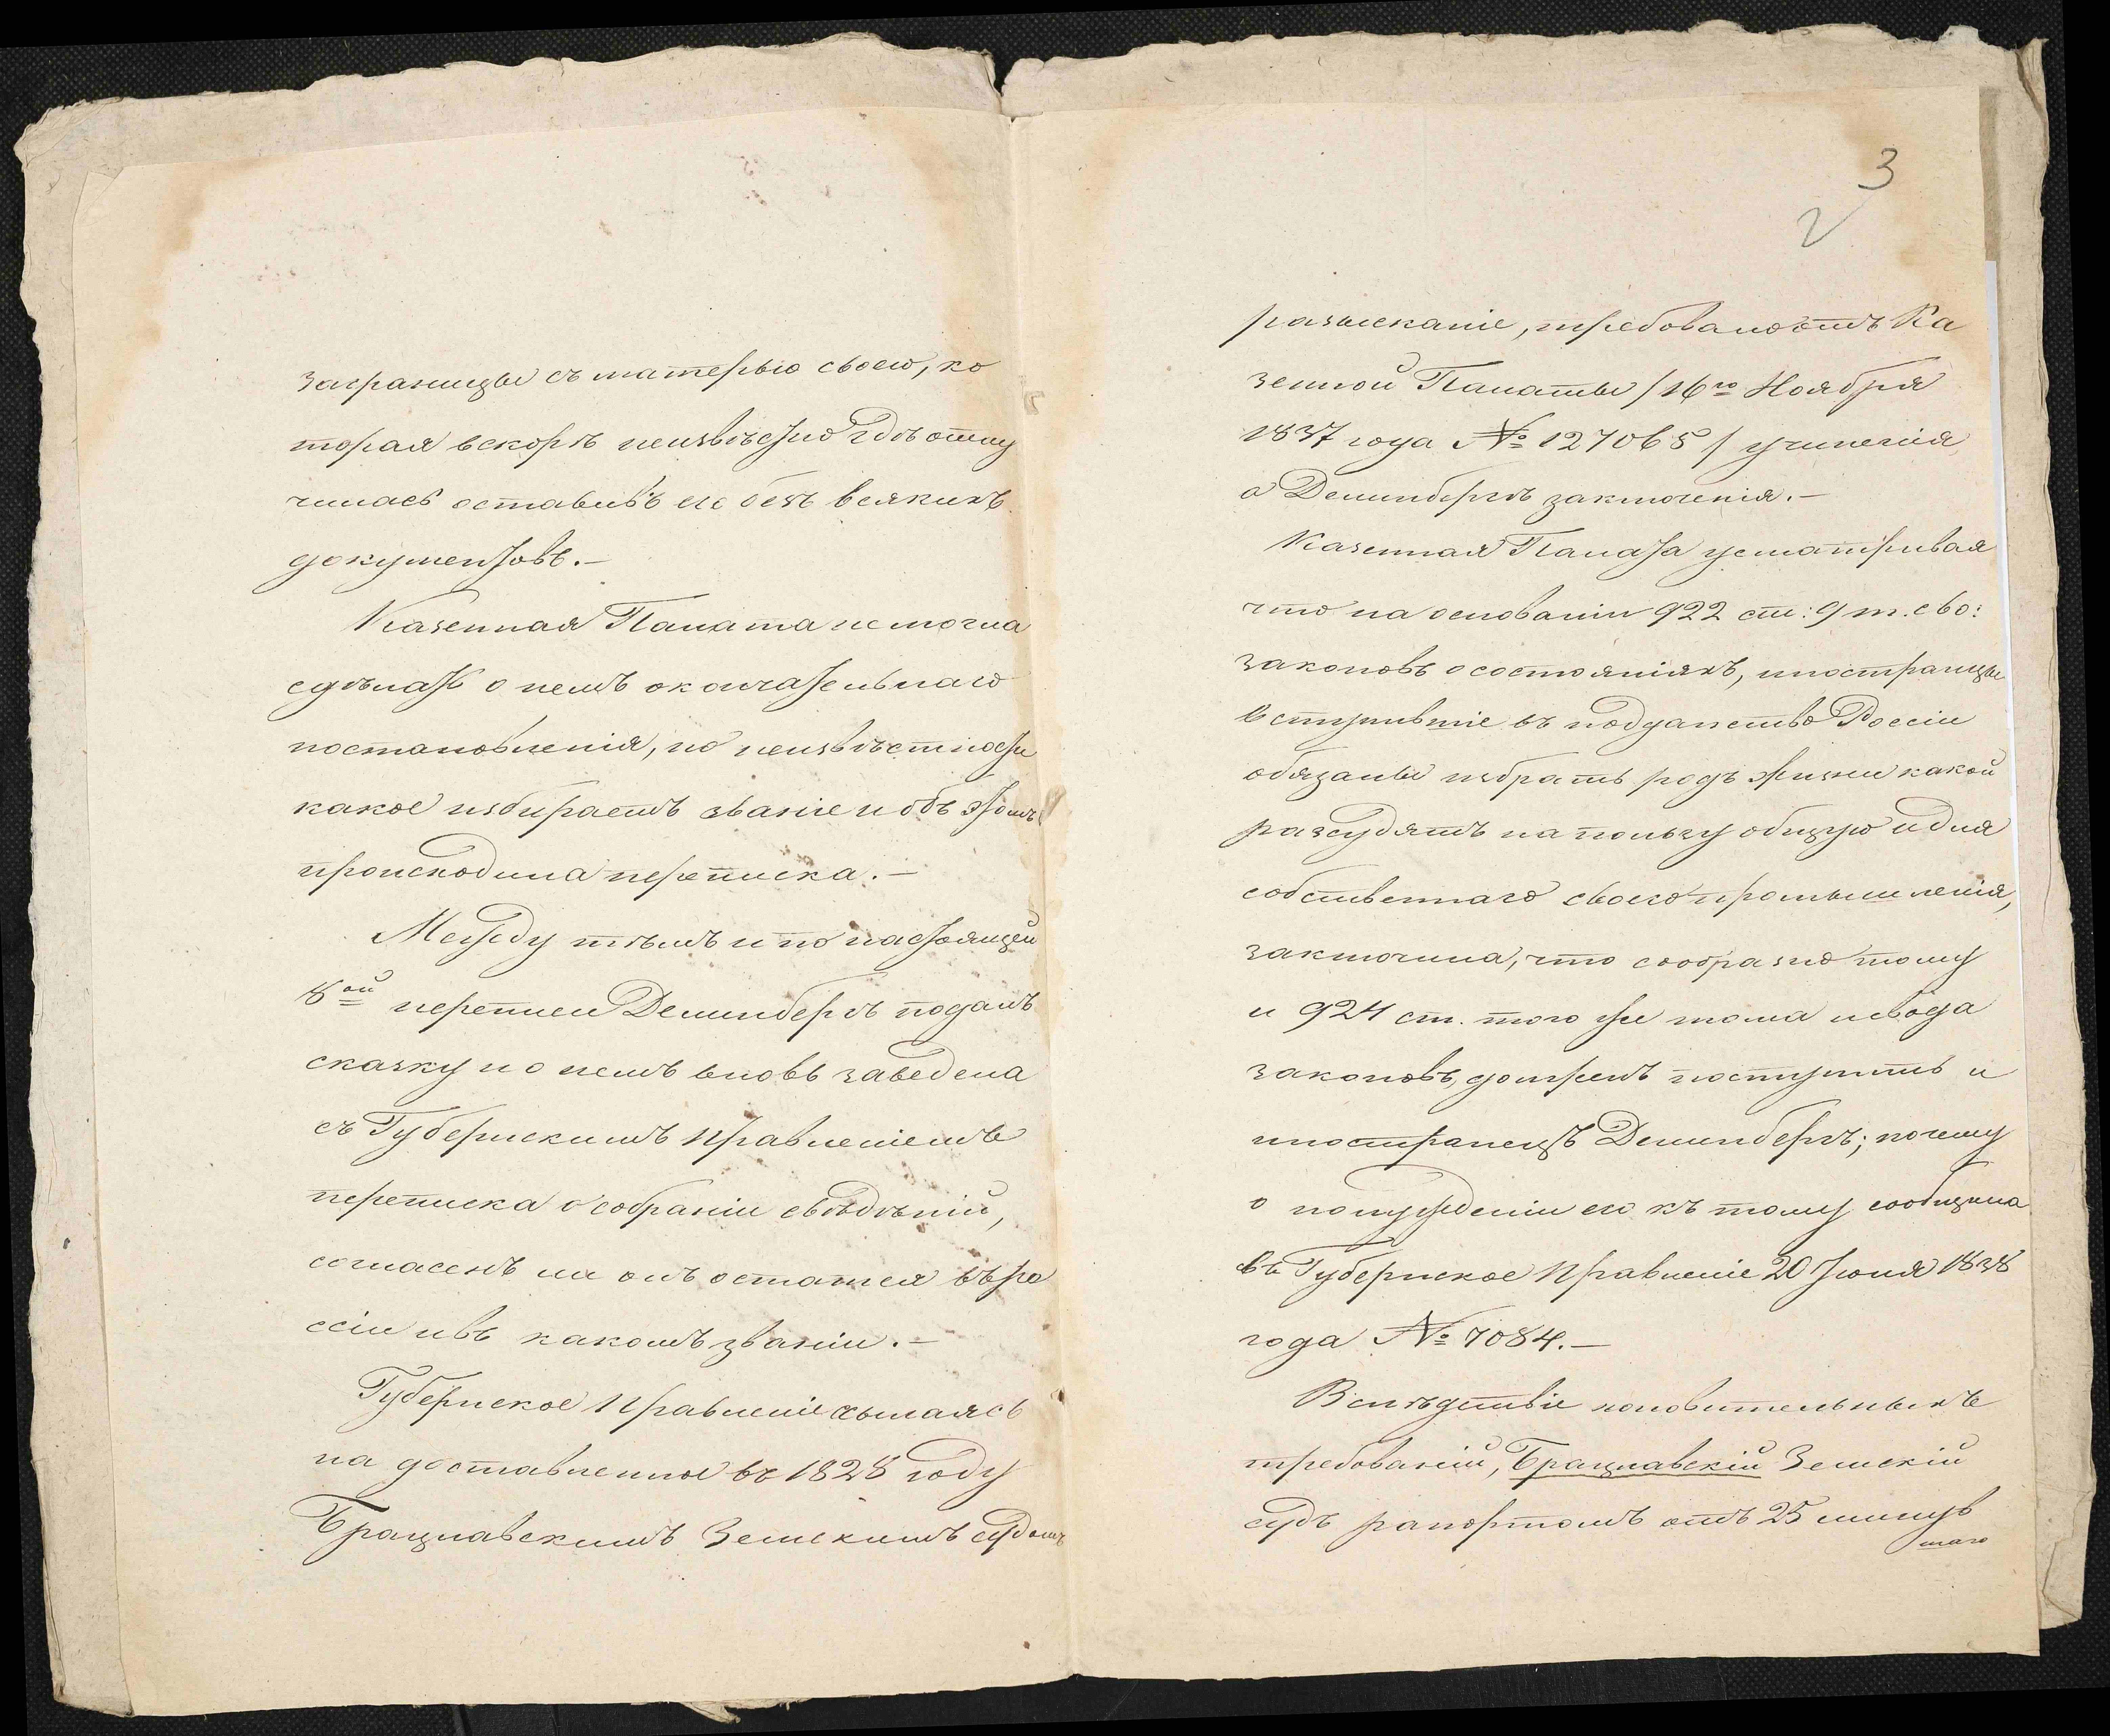 заграницы съ матерью своею, ко
торая вскорѣ неизвѣстно гдѣ отлу
чилась оставивъ его безъ всякихъ
документовъ.—
Казенная Палата не могла
сдѣлать о немъ окончательнаго
постановленія, по неизвѣстности
какое избираетъ званіе и объ этомъ
происходила переписка.—
Между тѣмъ и по настоящей
8ой переписи Делинбергъ подалъ
сказку и о немъ вновь заведена
съ Губернскимъ Правленіемъ
переписка о собраніи свѣдѣній,
согласенъ ли онъ остатся въ Ро
ссіи и въ какомъ званіи.—
Губернское Правленіе ссылаясь
на доставленное въ 1828 году
Брацлавскимъ Земскимъ судомъ
3
2
разысканіе, требовало отъ Ка
зенной Палаты /16го Ноября
1837 года № 127065/ учиненія
о Делинбергѣ заключенія.—
Казенная Палата усматривая
что на основаніи 922 ст: 9 т. сво:
законовъ о состояніяхъ, иностранцы
вступившіе въ подданство Россіи
обязаны избрать родъ жизни какой
разсудятъ на пользу общую и для
собственнаго своего промышленія,
заключила, что сообразно тому
и 924 ст. того же тома и свода
законовъ, долженъ поступить и
иностранецъ Делинбергъ; почему
о понужденіи его къ тому сообщила
въ Губернское Правленіе 20 Іюня 1838
года № 7084.—
Вслѣдствіе поновительныхъ
требованій, Брацлавскій Земскій
судъ рапортомъ отъ 25 минув
шаго